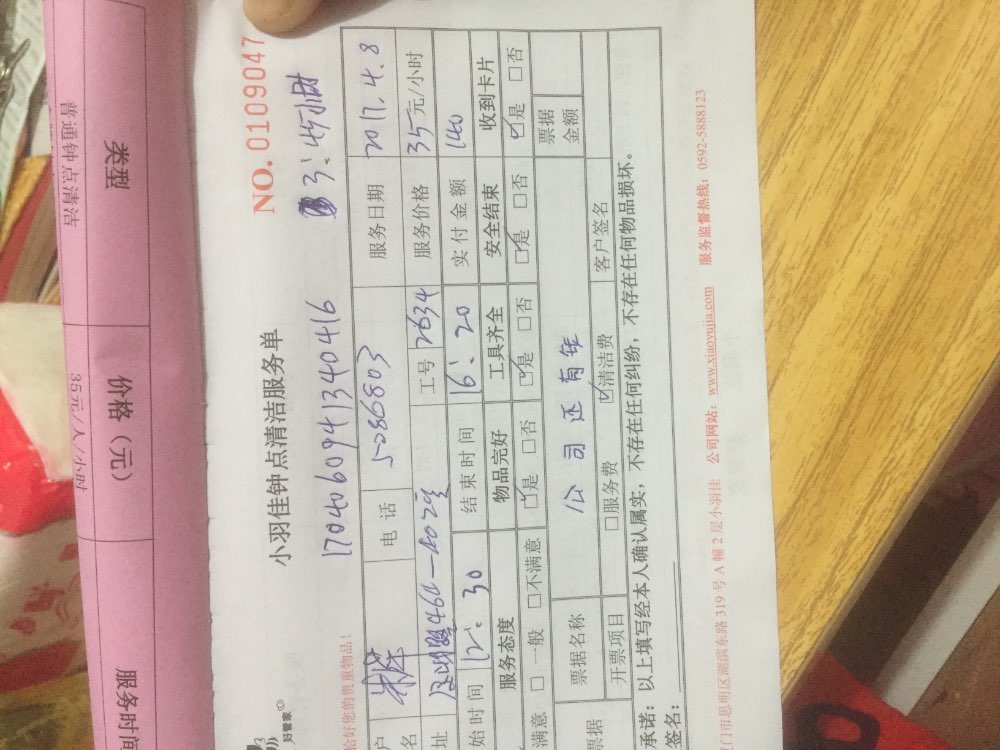 类型
价格（元）
服务时间
普通钟点清洁
35元/人/小时
好管家
小羽佳钟点清洁服务单
NO.0109047
恰好您的贵重物品！
170406094134O416
3:45小时
户名
电话 5086803
服务日期 2017.4.8
址
工号 2634
服务价格 35元/小时
始时间 12:30
结束时间 16:20
实付金额 140
服务态度
物品完好
工具齐全
安全结束
收到卡片
满意 □一般 □不满意
☑是 □否
☑是 □否
☑是 □否
☑是 □否
票据
票据名称
公司还有年
票据金额
开票项目
□服务费
☑清洁费
客户签名
承诺：以上填写经本人确认属实，不存在任何纠纷，不存在任何物品损坏。
签名：
门市思明区湖滨东路319号A幢2层小羽佳 公司网站：www.xiaoyujia.com 服务监督热线：0592-5888123